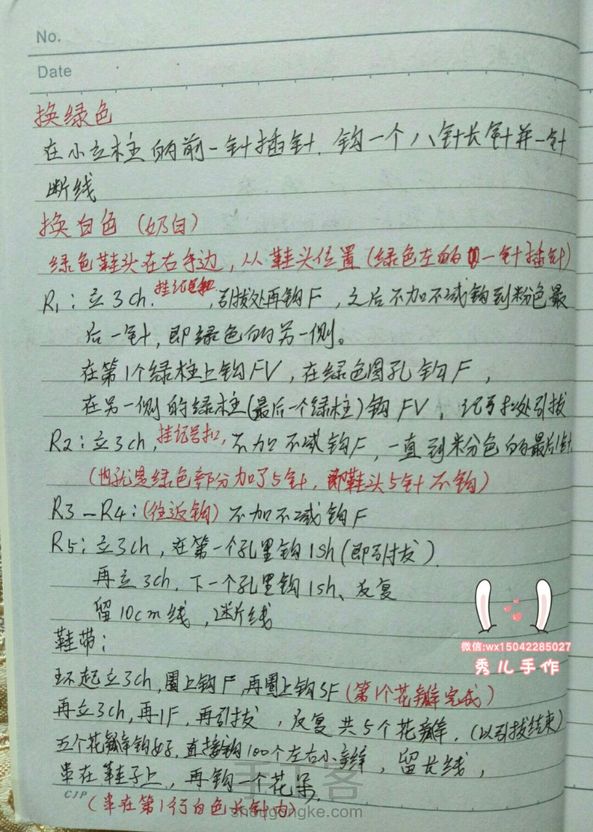 No.
Date
换绿色
在小立柱的前一针插针.钩一个八针长针并一针
断线
换白色(奶白)
绿色鞋头在右手边,从鞋头位置(绿色左的一针插针)
R1:立3ch.挂记号扣,引拔处再钩F,之后不加不减钩到粉色最
后一针,即绿色的另一侧。
在第1个绿柱上钩FV,在绿色圆孔钩F,
在另一侧的绿柱(最后一个绿柱)钩FV,记号扣处引拔
R2:立3ch,挂记号扣,不加不减钩F,一直到粉色的最后1针
(也就是绿色部分加了5针,即鞋头5针不钩)
R3-R4:(往返钩)不加不减钩F
R5:立3ch,在第一个孔里钩1sh(即引拔).
再立3ch,下一个孔里钩1sh、反复
留10cm线,断线
微信:wx15042285027
秀儿手作
鞋带:
环起立3ch,圈上钩F,再圈上钩SF(第1个花瓣完成)
再立3ch,再1F,再引拔,反复共5个花瓣.(以引拔结束)
五个花瓣钩好,直接钩100个左右小辫,留长线,
串在鞋子上,再钩一个花朵
CJP
(串在第1行白色长针内)
shougongke.com